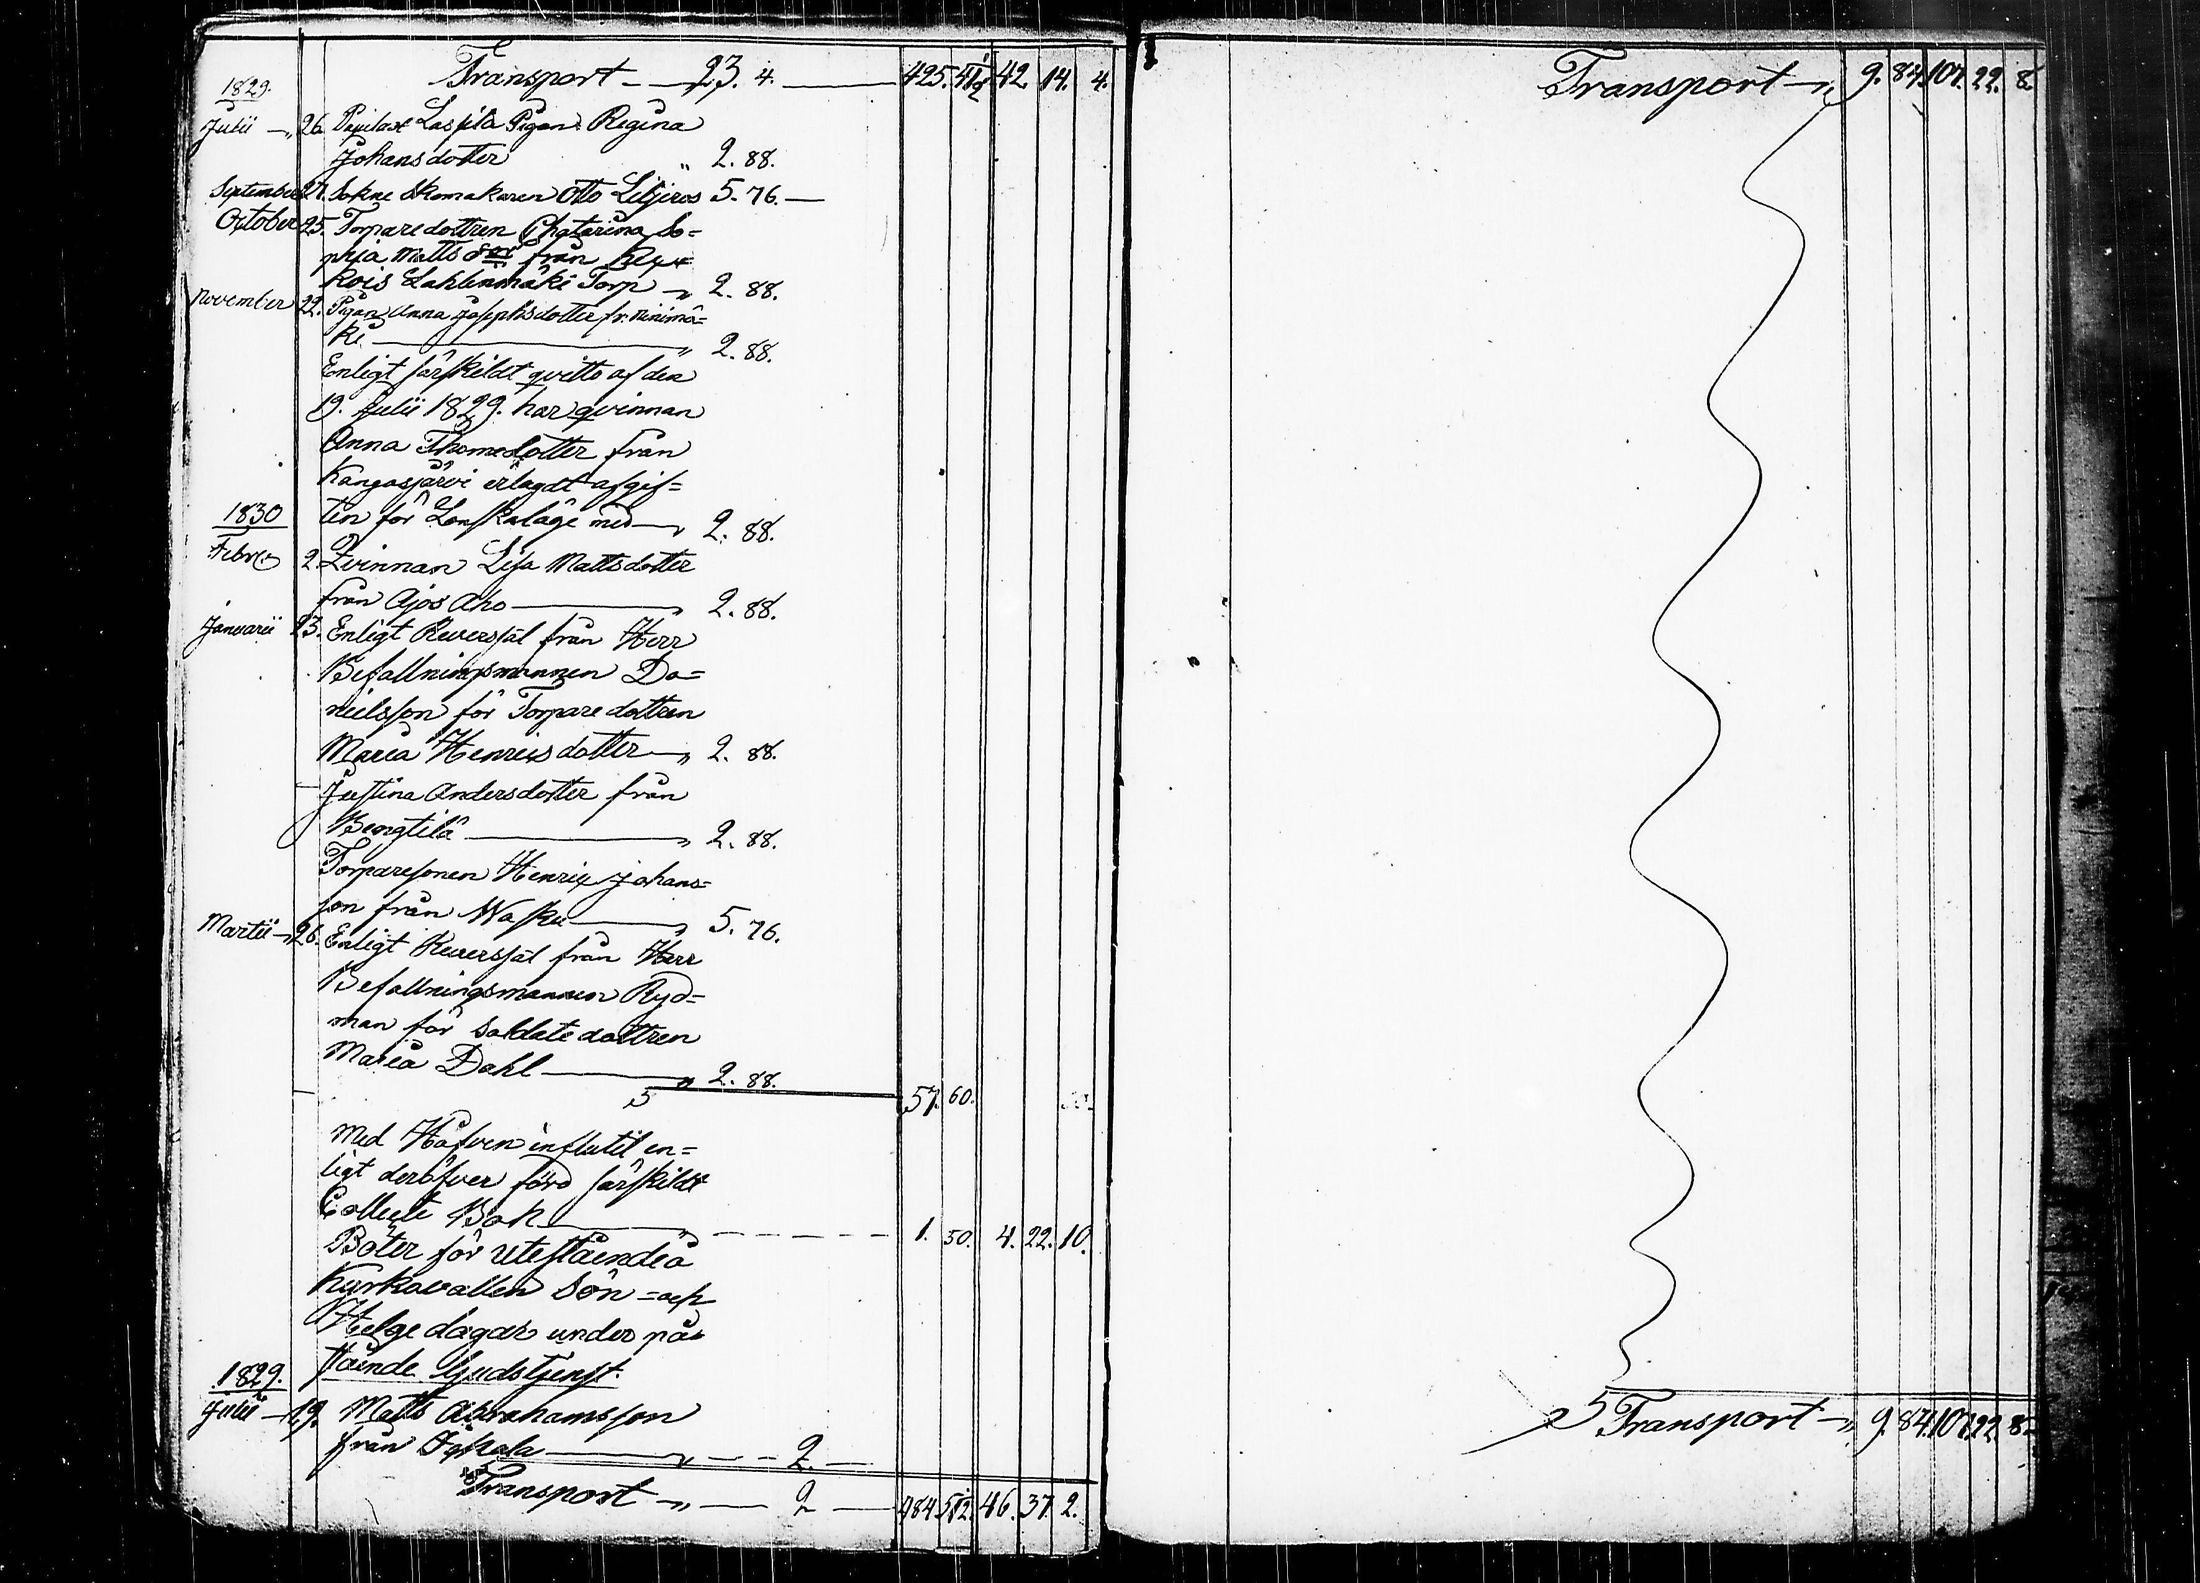 Transport — 23. 4. — 425. 51½ 42. 14. 4.
1829.
Julii — 26. Pigan Regina
Johansdotter " 2. 88.
September 27. Sokne Skomakaren Otto Liljeros 5. 76. —
October 25. Torparedottren Chatarina So=
phia Matts dr från
kois Lahdenmäki Torp " 2. 88.
November 22. Pigan Anna Josephsdotter fr. Ninimä=
ki — " 2. 88.
Enligt särskildt qvitto af den
19. Julii 1829. har qvinnan
Anna Thomedotter från
Kangasjärvi erlagdt afgif=
ten för Lönskaläge med — " 2. 88.
1830
Febr. 2. Qvinnan Lisa Mattsdotter
från Ajos Aho — " 2. 88.
Januarii 23. Enligt Reverssal från Herr
Befallningsmannen Da=
nielsson för Torparedottren
Maria Henricsdotter — " 2. 88.
Justina Andersdotter från
Bengtilä — " 2. 88.
Torparesonen Henric Johans=
son från Wasku — " 5. 76.
Martii — 26. Enligt Reverssal från Herr
Befallningsmannen Ryd=
man för Soldatedottren
Maria Dahl — " 2. 88.
57. 60.
Med Håfven influtit en=
ligt deröfver förd särskildt
Collecte Bok — 1. 50. 4. 22. 10.
Böter för utestående å
Kyrkovallen Sön =och
Helgedagar under på=
stående Gudstjenst.
1829.
Julii — 19. Matts Abrahamsson
från Jokala — " — 2. —
Transport — " — 2 — 484. 51½. 46. 37. 2.
Transport — " 9. 84. 107. 22. 8.
Transport — " 9. 84. 107. 22. 8.